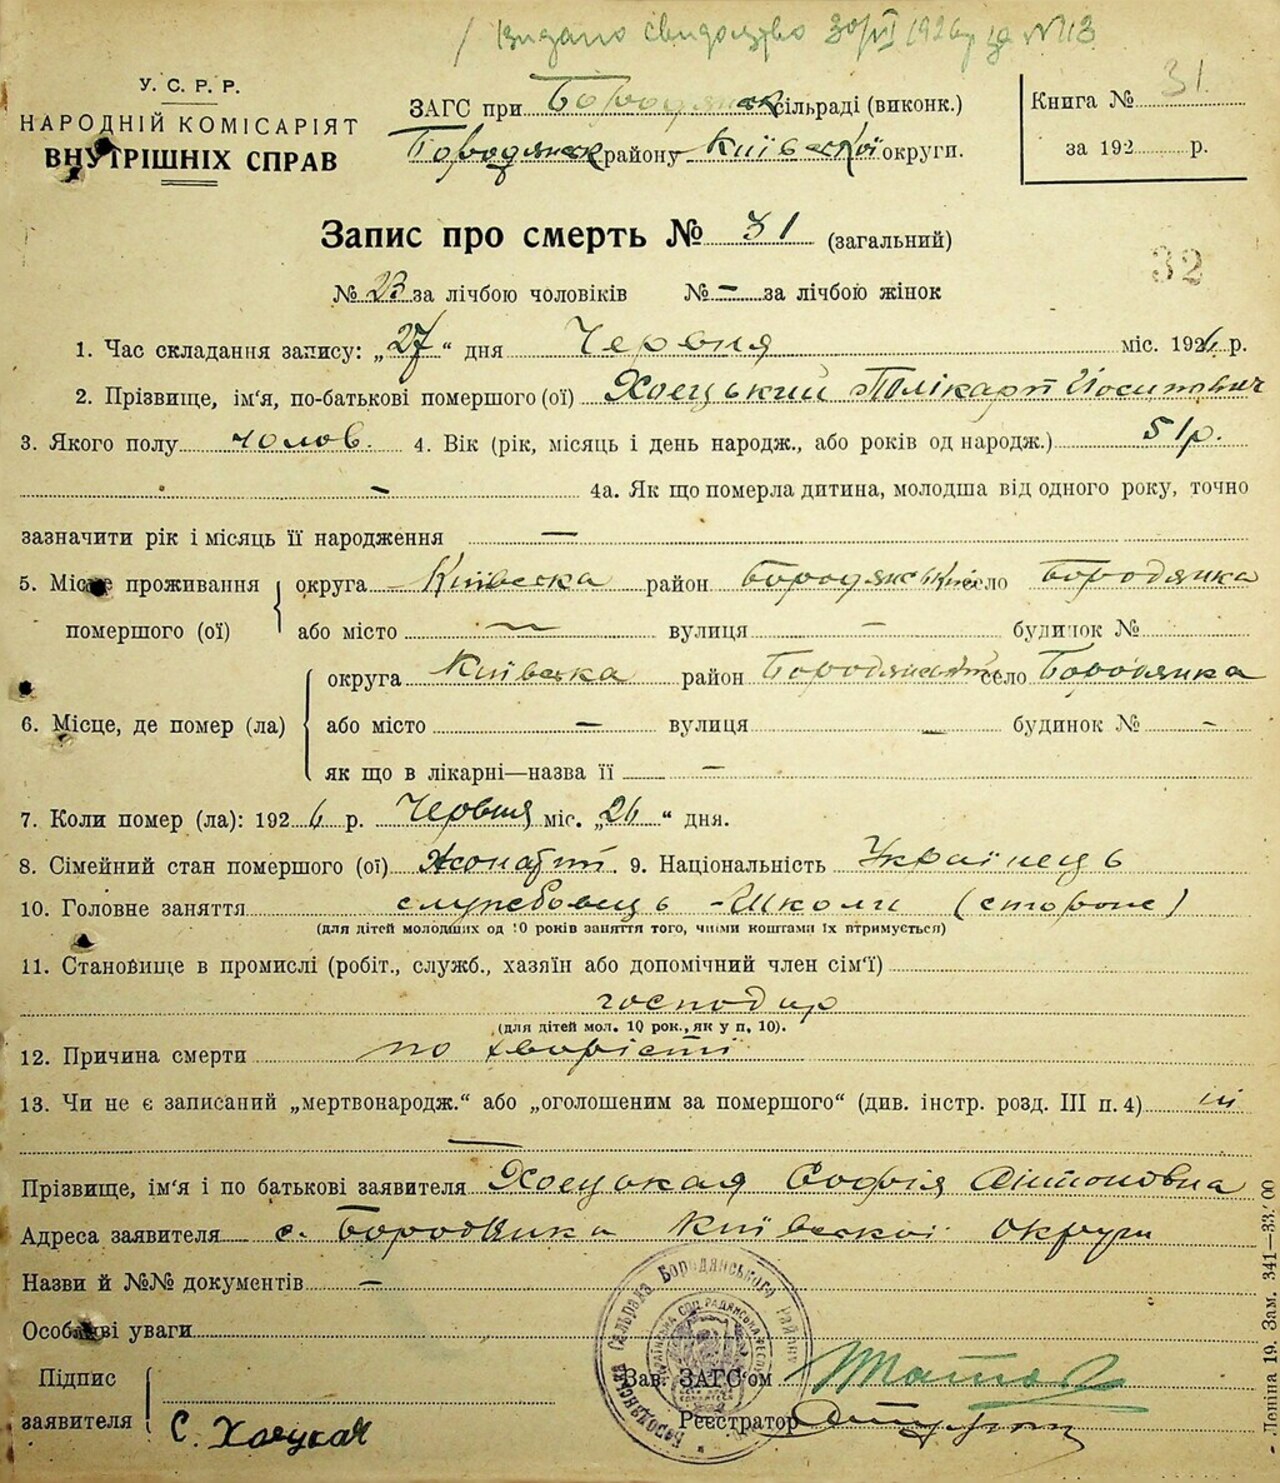 Видано свидоцтво 30/VI 1926 р за № 113
У. С. Р. Р.
НАРОДНІЙ КОМІСАРІЯТ
ВНУТРІШНІХ СПРАВ
ЗАГС при Бородянск сільраді (виконк.)
Бородянск району Київскої округи.
Книга № 31
за 192 р.
Запис про смерть № 31 (загальний)
32
№ 23 за лічбою чоловіків № — за лічбою жінок
1. Час складання запису: „27“ дня Червня міс. 1926 р.
2. Прізвище, ім'я, по-батькові помершого (ої) Хоецький Полікарп Йосипович
3. Якого полу чолов. 4. Вік (рік, місяць і день народж., або років од народж.) 51 р.
— 4а. Як що померла дитина, молодша від одного року, точно
зазначити рік і місяць її народження —
5. Місце проживання помершого (ої) округа Київска район Бородянський село Бородянка
або місто — вулиця — будинок №
6. Місце, де помер (ла) округа Київска район Бородянський село Бородянка
або місто — вулиця — будинок № —
як що в лікарні—назва її —
7. Коли помер (ла): 1926 р. Червня міс. „26“ дня.
8. Сімейний стан помершого (ої) жонатий. 9. Національність Українець
10. Головне заняття служебовець - Школи (сторож)
(для дітей молодших од 10 років заняття того, чиїми коштами їх втримується)
11. Становище в промислі (робіт., служб., хазяїн або допомічний член сім'ї)
господар
(для дітей мол. 10 рок., як у п. 10).
12. Причина смерти по хворісті
13. Чи не є записаний „мертвонародж.“ або „оголошеним за помершого“ (див. інстр. розд. III п. 4) ні
—
Прізвище, ім'я і по батькові заявителя Хоецькая Софія Антоновна
Адреса заявителя с. Бородянка Київскої округи
Назви й №№ документів —
Особливі уваги
Підпис заявителя С. Хоецкая
Зав. ЗАГС'ом
Реєстратор
Бородянська Сільрада Бородянського району
Українська Соц. Радянська Респу
Леніна 19. Зам. 341—33000